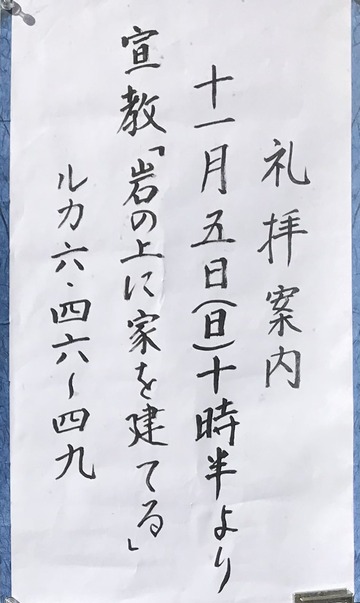 礼拝案内
十一月五日(日)十時半より
宣教「岩の上に家を建てる」
ルカ六・四六~四九